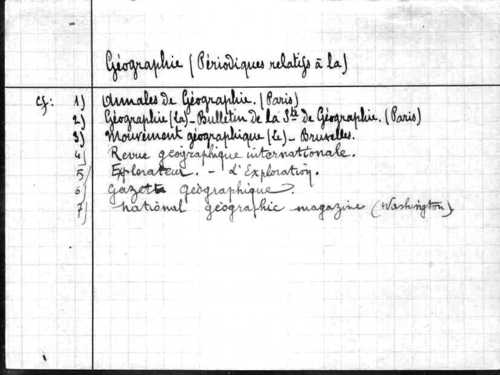 Géographie (Périodiques relatifs à la)
cf: 1) Annales de Géographie. (Paris)
2) Géographie (La) - Bulletin de la Sté de Géographie. (Paris)
3) Mouvement géographique (Le) - Bruxelles.
4) Revue géographique internationale.
5/ Explorateur. - d'Exploration.
6) Gazette géographique.
7) National géographic magazine (Washington)